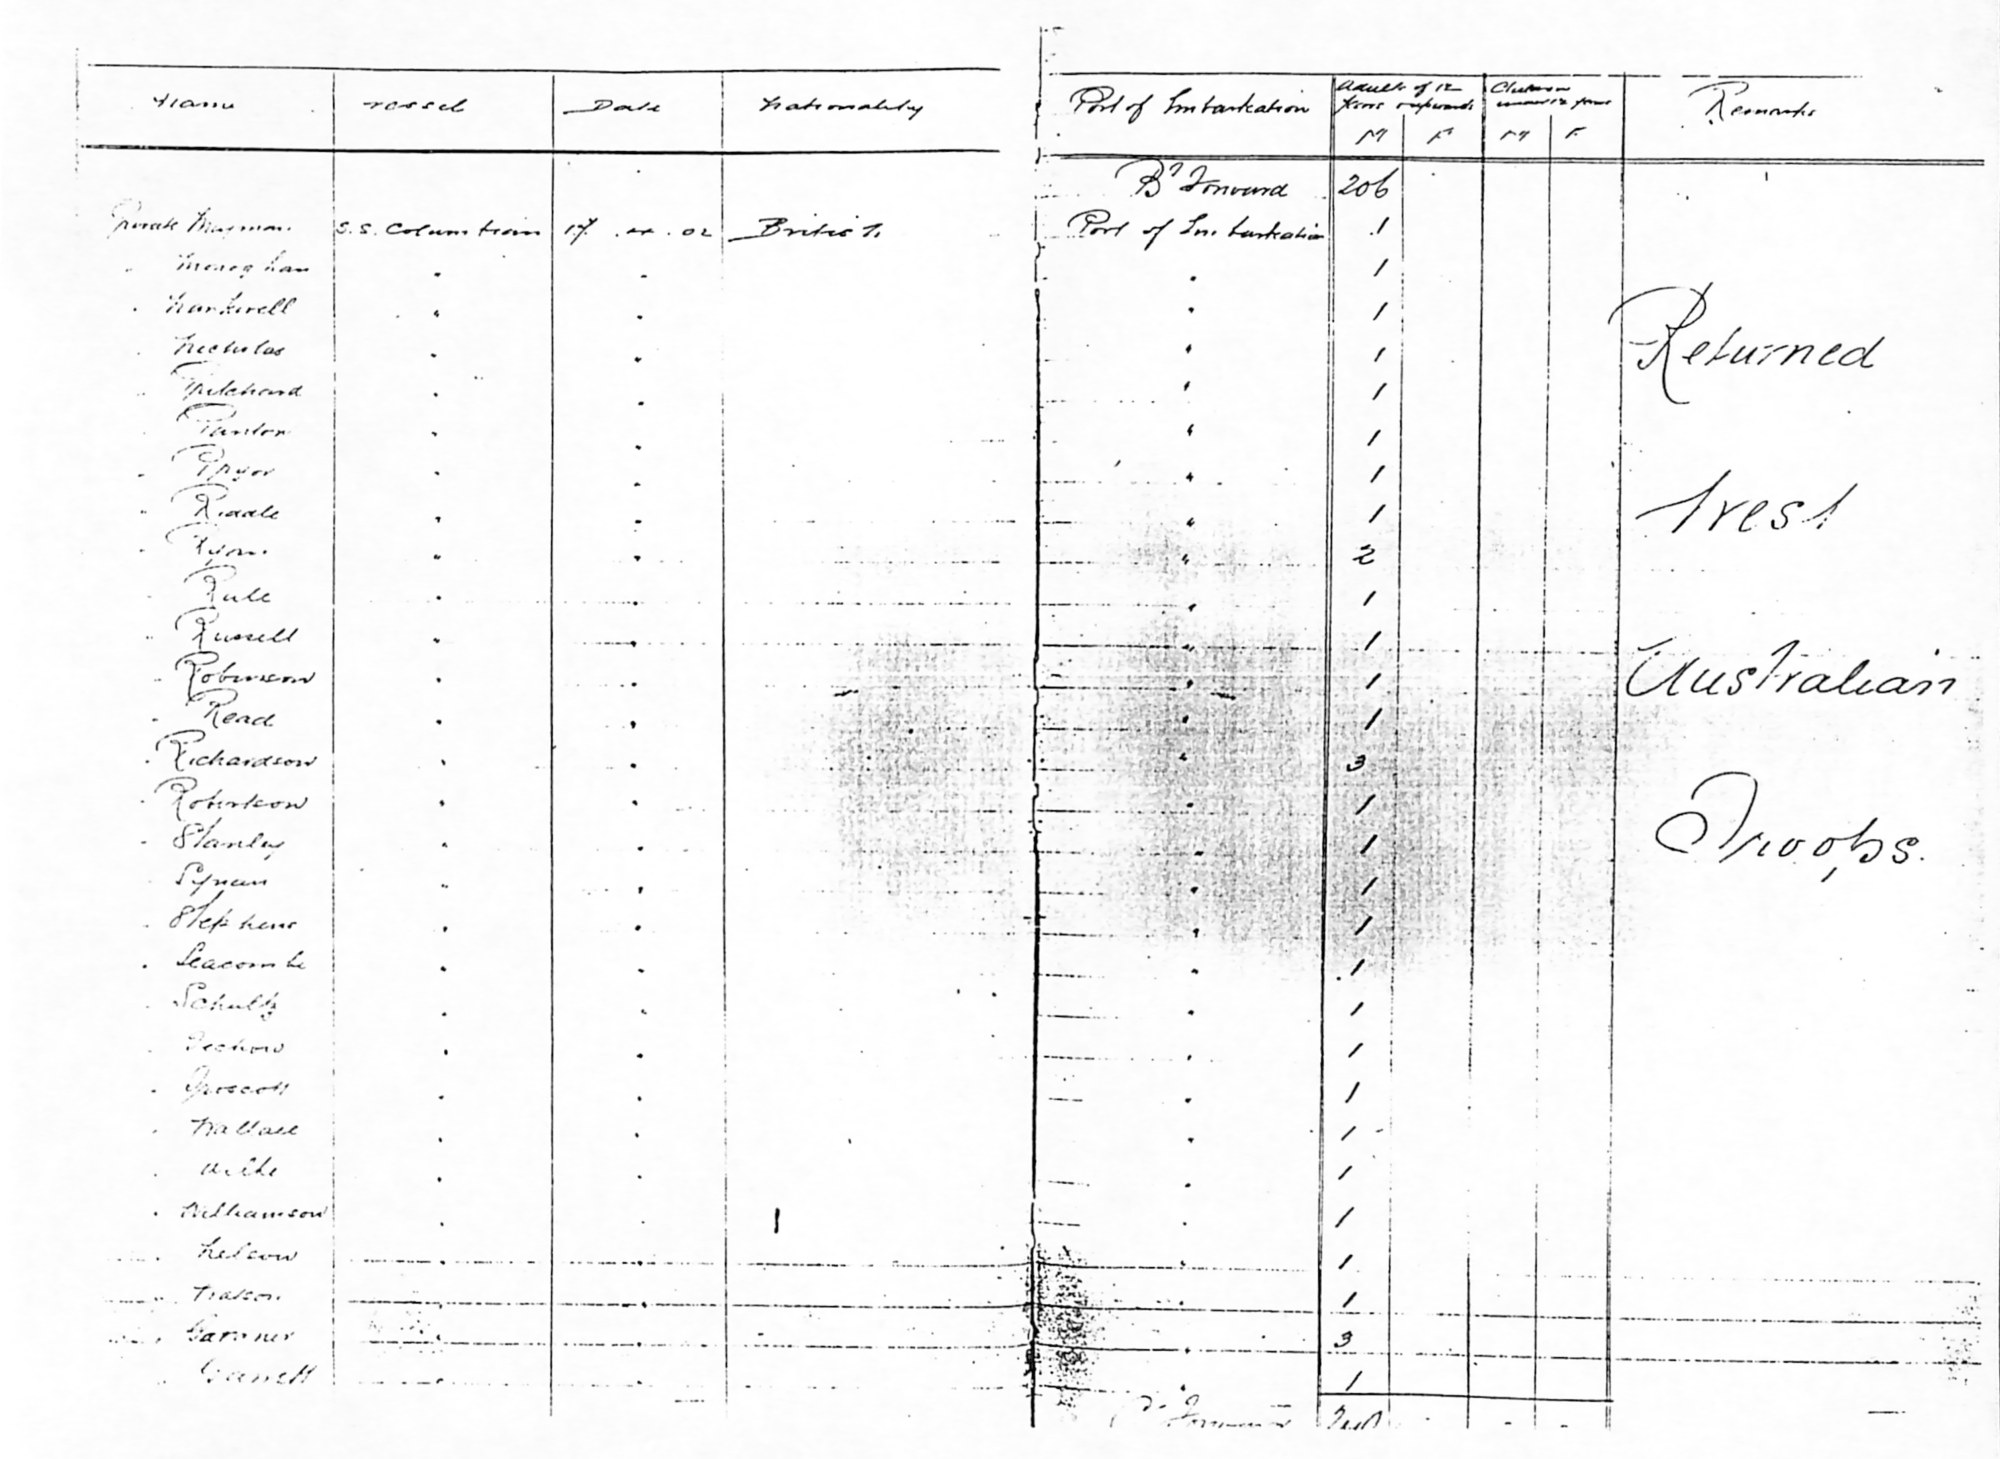 Name Vessel Date Nationality Port of Embarkation Adults of 12 years & upwards Children under 12 years Remarks
M F M F
Bt Forward 206
Private S.S. Columbian 17 .02 British Port of Embarkation 1
" Monaghan " " " 1
" Nankivell " " " 1
" Nicholas " " " 1
" Pritchard " " " 1
" " " " 1
" Pryor " " " 1
" Riddle " " " 1
" Ryan " " " 2
" Rule " " " 1
" Russell " " " 1
" Robinson " " " 1
" Read " " " 1
" Richardson " " " 3
" Robertson " " " 1
" Stanley " " " 1
" " " " 1
" Stephens " " " 1
" Seacombe " " " 1
" Schultz " " " 1
" " " " 1
" " " " 1
" Wallace " " " 1
" " " " 1
" Williamson " " " 1
" " " " 1
" Watson " " " 1
" Gardner " " " 3
" Garrett " " " 1
Forward
Returned
West
Australian
Troops.